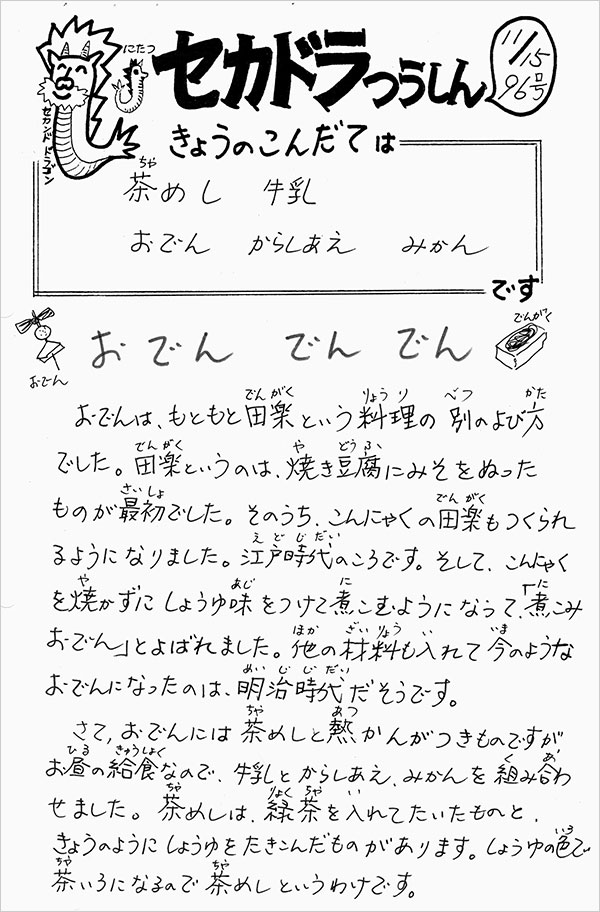 にたつ
セカドラつうしん
11/15
96号
セカンドドラゴン
きょうのこんだては
茶めし 牛乳
おでん からしあえ みかん
です
おでん でん でん
おでん
でんがく
おでんは、もともと田楽という料理の別のよび方
でした。田楽というのは、焼き豆腐にみそをぬった
ものが最初でした。そのうち、こんにゃくの田楽もつくられ
るようになりました。江戸時代のころです。そして、こんにゃく
を焼かずにしょうゆ味をつけて煮こむようになって、「煮こみ
おでん」とよばれました。他の材料も入れて今のような
おでんになったのは、明治時代だそうです。
さて、おでんには茶めしと熱かんがつきものですが、
お昼の給食なので、牛乳とからしあえ、みかんを組み合わ
せました。茶めしは、緑茶を入れてたいたものと、
きょうのようにしょうゆをたきこんだものがあります。しょうゆの色で
茶いろになるので茶めしというわけです。